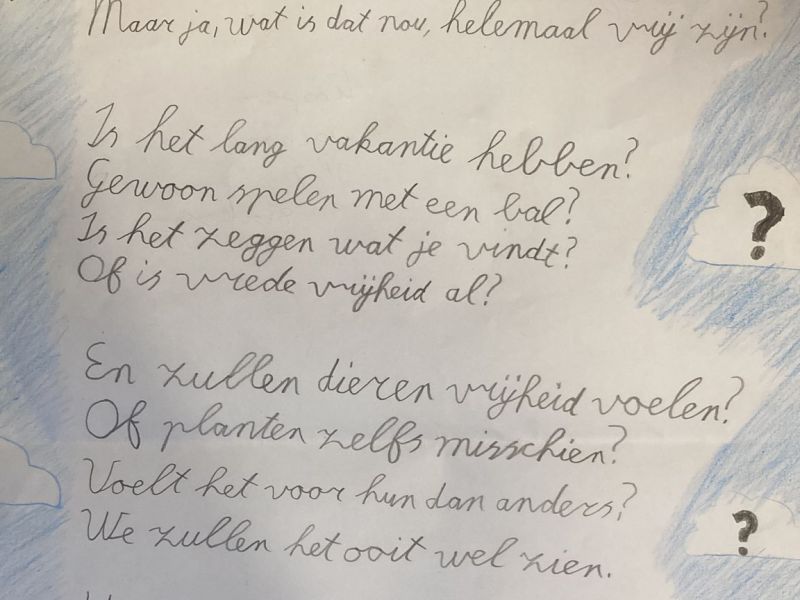 Maar ja, wat is dat nou, helemaal vrij zijn?
Is het lang vakantie hebben?
Gewoon spelen met een bal?
Is het zeggen wat je vindt?
Of is vrede vrijheid al?
?
En zullen dieren vrijheid voelen?
Of planten zelfs misschien?
Voelt het voor hun dan anders?
We zullen het ooit wel zien.
?